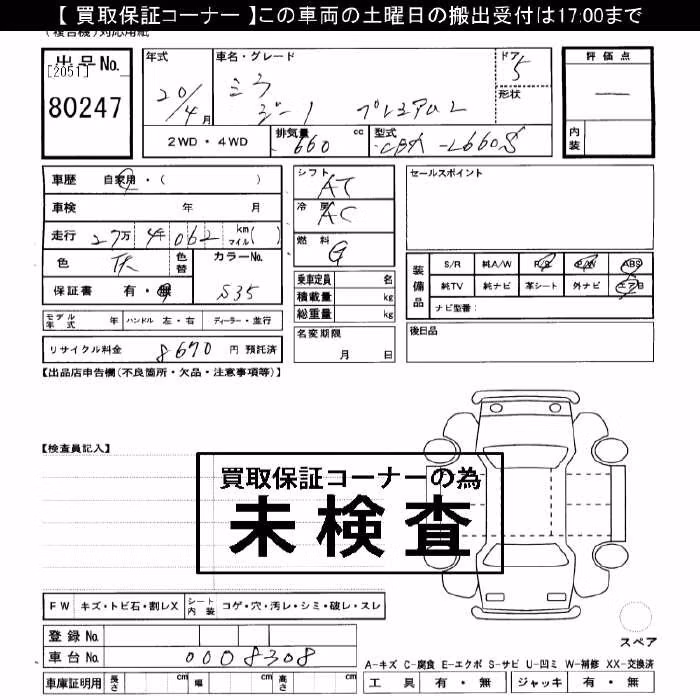 【 買取保証コーナー 】この車両の土曜日の搬出受付は17:00まで
(複合機)対応用紙
出品No. [2051] 80247
年式 20/4月
車名・グレード ミラ ジーノ プレミアムL
ドア 5
形状
2WD・4WD
排気量 660 cc
型式 CBA-L660S
評価点 —
内装
車歴 自家用・( )
車検 年 月
走行 27万4千062 km マイル( )
色 灰 色替 カラーNo. S35
保証書 有・無
モデル年式 年 ハンドル 左・右 ディーラー・並行
リサイクル料金 8670 円 預託済
シフト AT
冷房 AC
燃料 G
乗車定員 名
積載量 kg
総重量 kg
名変期限 月 日
セールスポイント
装備品 S/R 純A/W P/S P/W ABS
純TV 純ナビ 革シート 外ナビ エアB
ナビ型番:
後日品
【出品店申告欄(不良箇所・欠品・注意事項等)】
【検査員記入】
買取保証コーナーの為
未検査
FW キズ・トビ石・割レX シート内装 コゲ・穴・汚レ・シミ・破レ・スレ
登録No.
車台No. 0008308
車庫証明用 長さ cm 幅 cm 高さ cm
スペア
A-キズ C-腐食 E-エクボ S-サビ U-凹ミ W-補修 XX-交換済
工具 有・無 ジャッキ 有・無